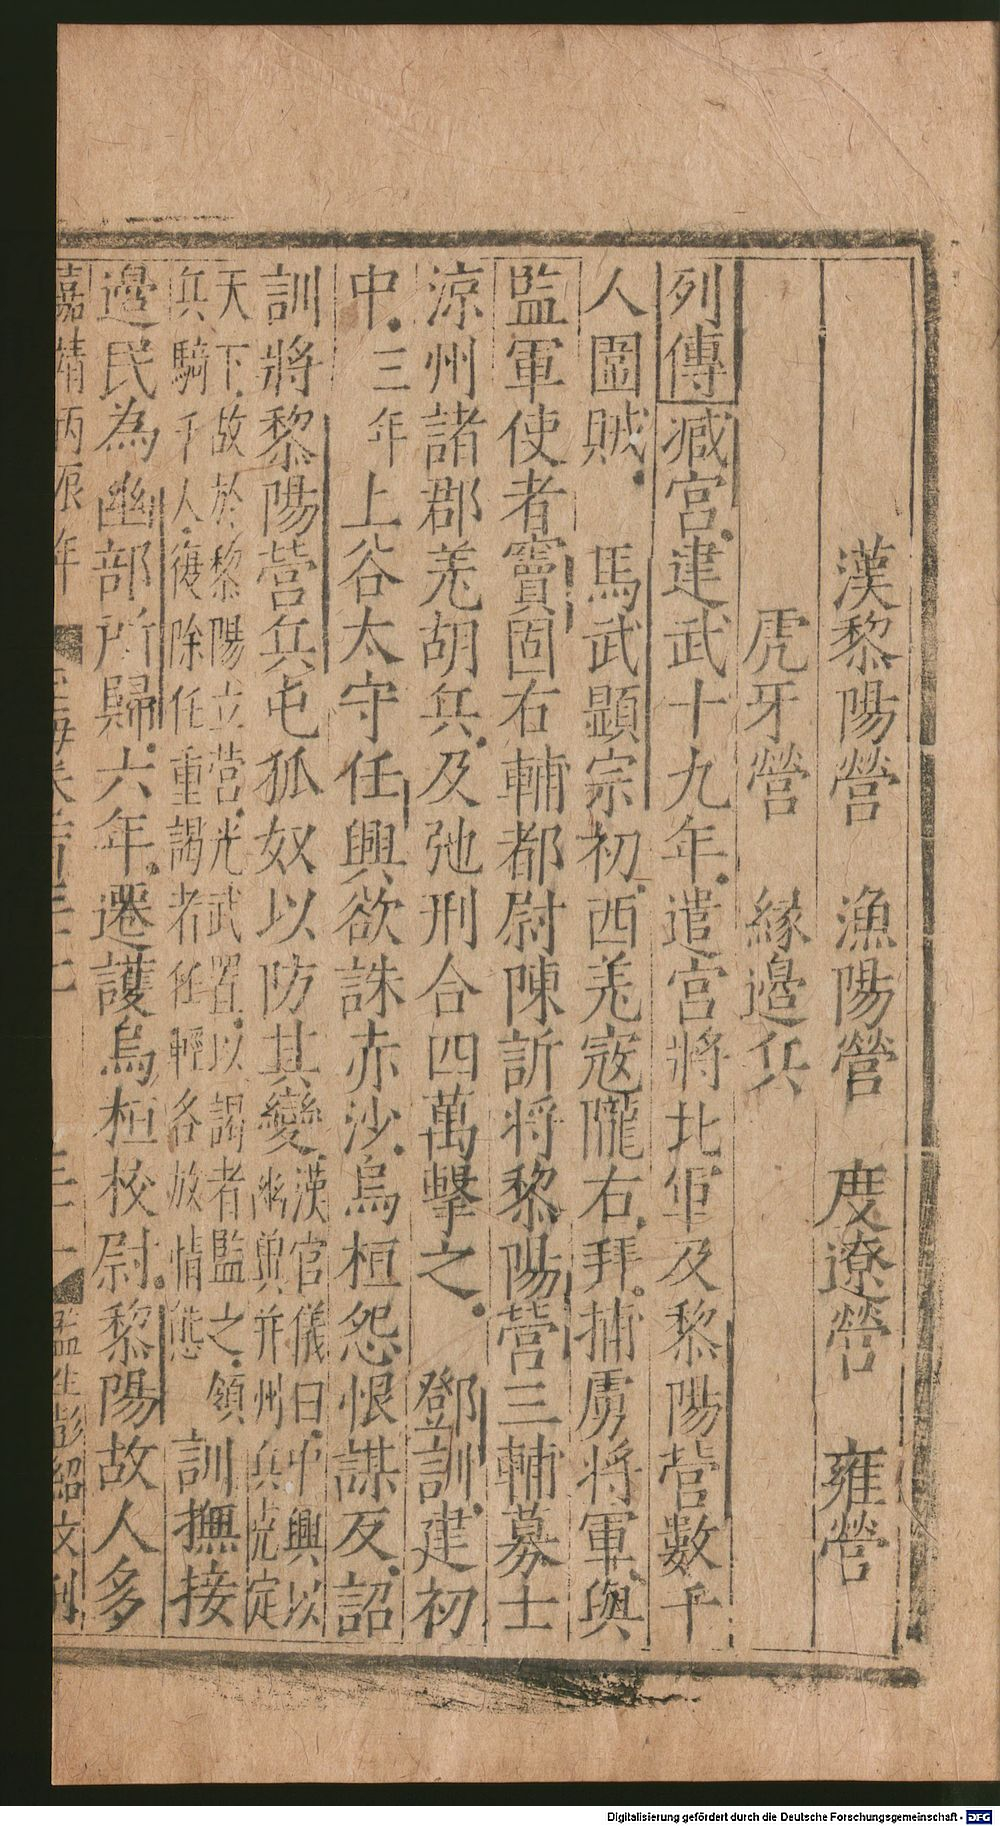 漢黎陽營 漁陽營 度遼營 雍營
虎牙營 緣邊兵
列傳臧宮建武十九年遣宮將北軍及黎陽營數千
人圍賊 馬武顯宗初西羌寇隴右拜捕虜將軍與
監軍使者竇固右輔都尉陳訢將黎陽營三輔募士
涼州諸郡羌胡兵及弛刑合四萬擊之 鄧訓建初
中三年上谷太守任興欲誅赤沙烏桓怨恨謀反詔
訓將黎陽營兵屯狐奴以防其變漢官儀曰中興以
幽冀并州兵克定
天下故於黎陽立營光武置以謁者監之領
兵騎千人復除任重謁者任輕各放情態
訓撫接
邊民為幽部所歸六年遷護烏桓校尉黎陽故人多
嘉靖丙辰年 玉海卷 監生彭紹文刊
Digitalisierung gefördert durch die Deutsche Forschungsgemeinschaft - DFG